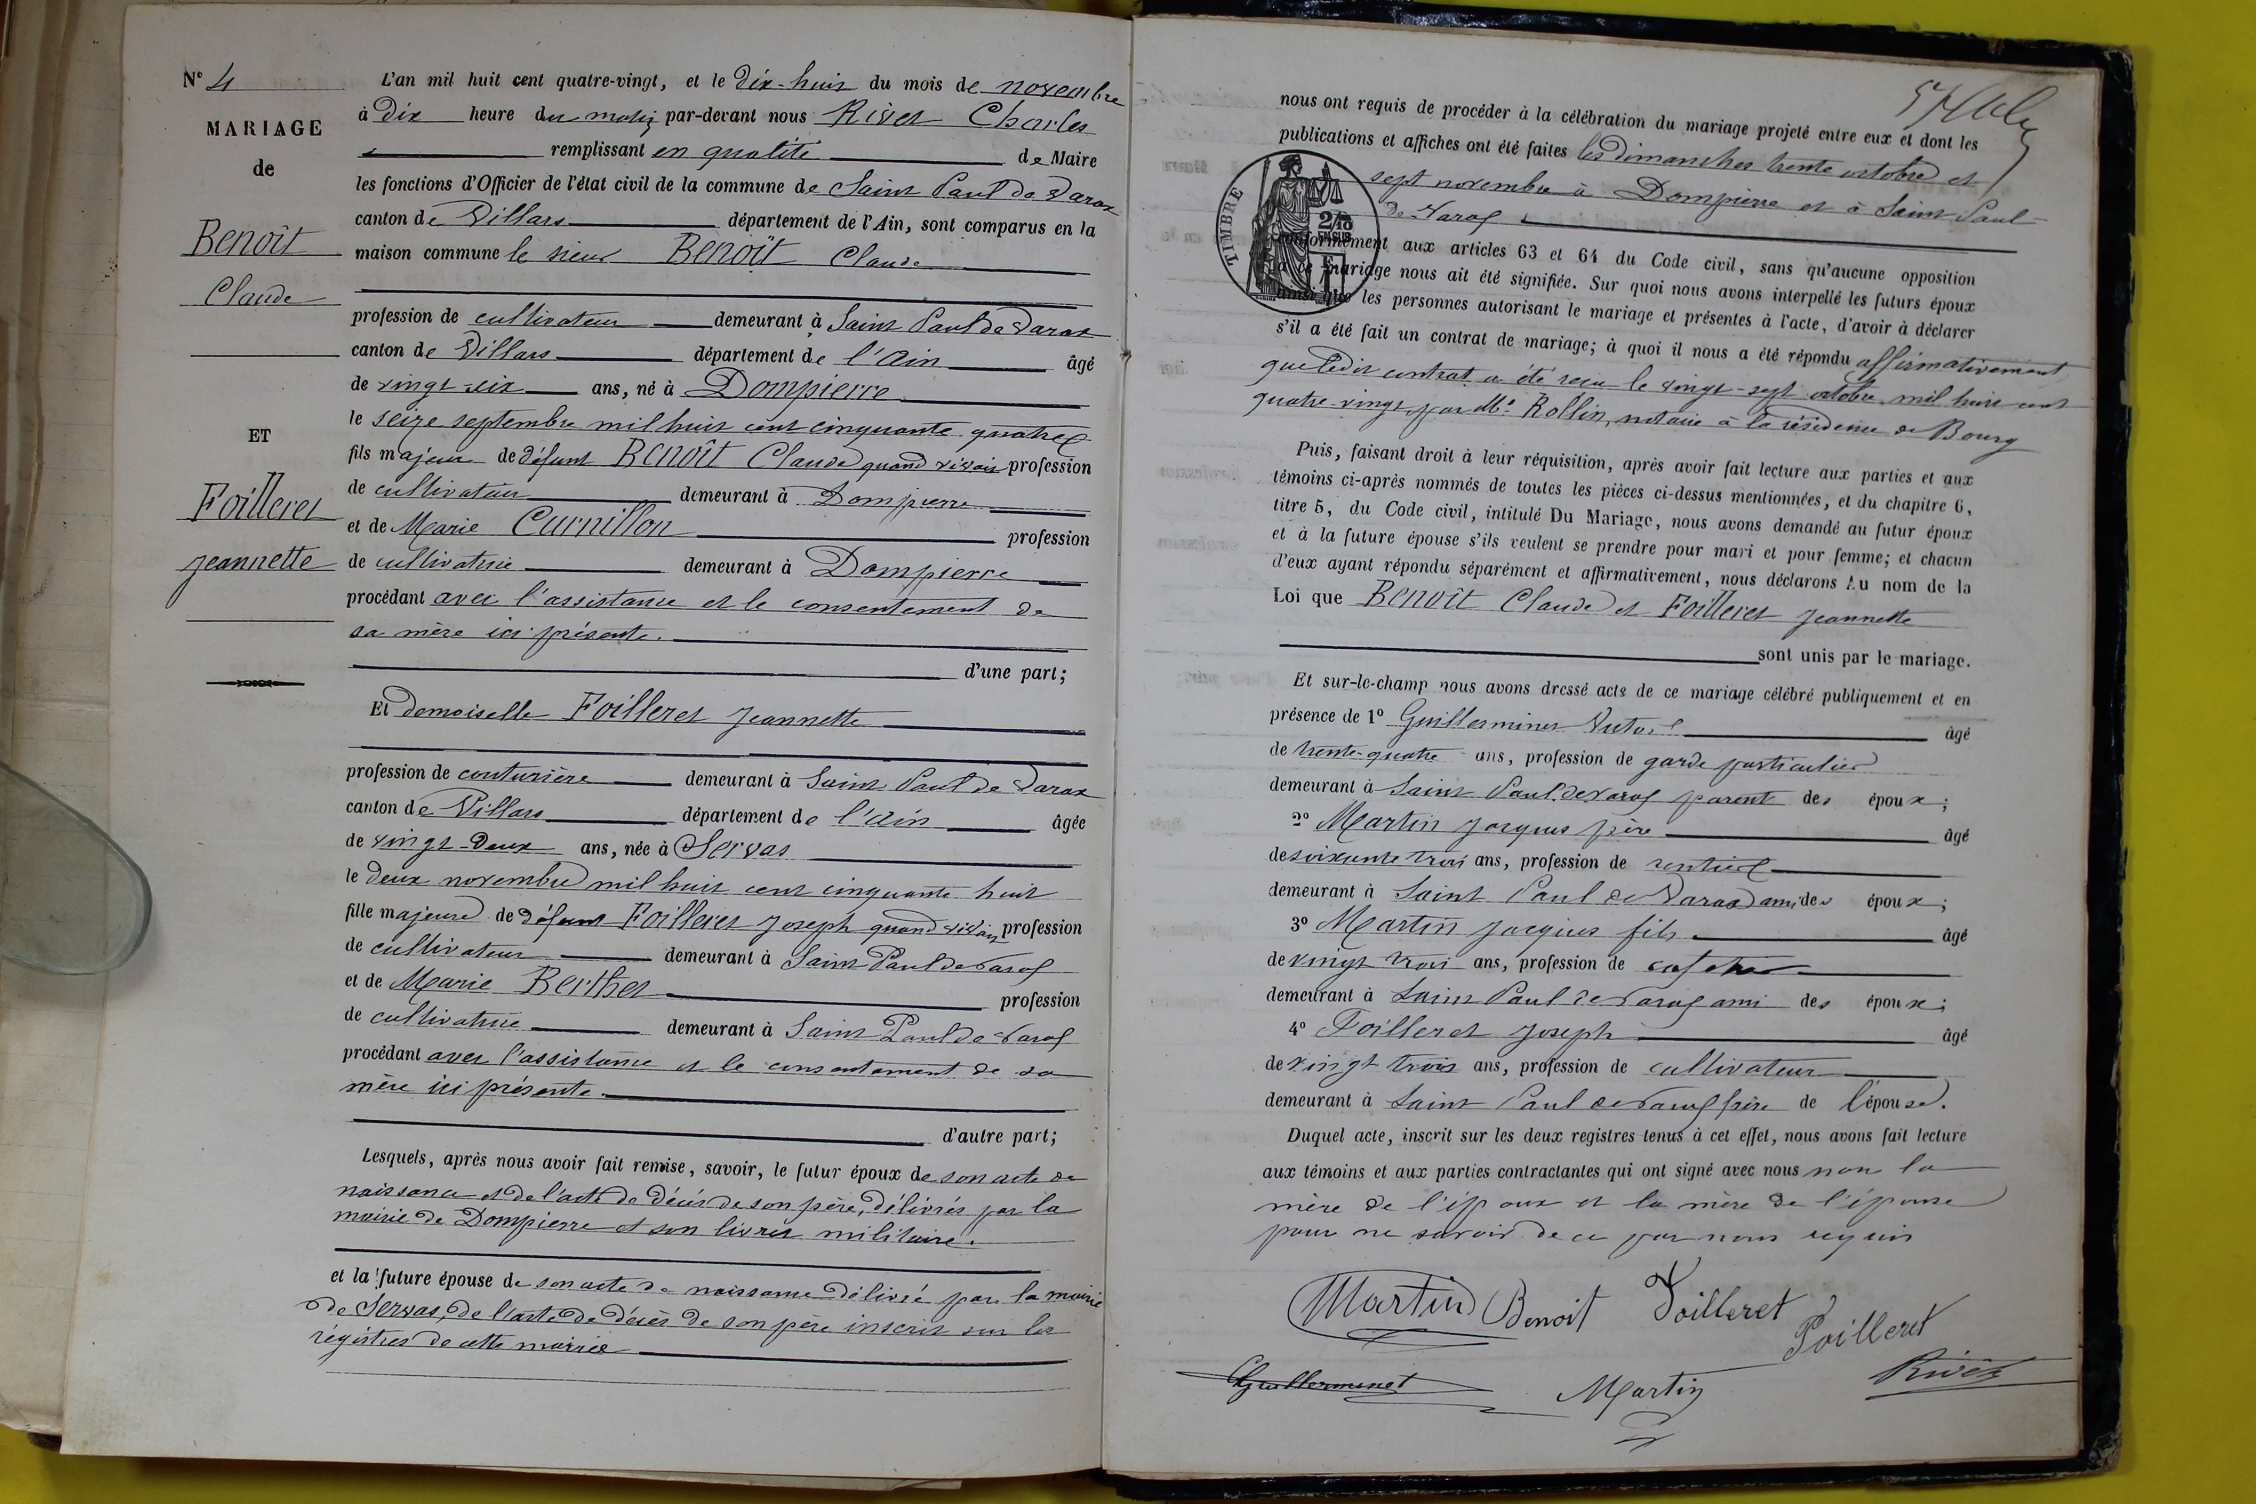 N° 4
MARIAGE
de
Benoît
Claude
ET
Foilleret
Jeannette
L'an mil huit cent quatre-vingt, et le dix-huit du mois de novembre
à dix heure du matin par-devant nous Rivet Charles
remplissant en qualité de Maire
les fonctions d'Officier de l'état civil de la commune de Saint Paul de Varax
canton de Villars département de l'Ain, sont comparus en la
maison commune le sieur Benoît Claude
profession de cultivateur demeurant à Saint Paul de Varax
canton de Villars département de l'Ain âgé
de vingt-six ans, né à Dompierre
le seize septembre mil huit cent cinquante quatre
fils majeur de défunt Benoît Claude quand vivait profession
de cultivateur demeurant à Dompierre
et de Marie Curnillon profession
de cultivatrice demeurant à Dompierre
procédant avec l'assistance et le consentement de
sa mère ici présente.
d'une part;
Et demoiselle Foilleret Jeannette
profession de couturière demeurant à Saint Paul de Varax
canton de Villars département de l'Ain âgée
de vingt-deux ans, née à Servas
le deux novembre mil huit cent cinquante huit
fille majeure de défunt Foilleret Joseph quand vivait profession
de cultivateur demeurant à Saint Paul de Varax
et de Marie Berthet profession
de cultivatrice demeurant à Saint Paul de Varax
procédant avec l'assistance et le consentement de sa
mère ici présente.
d'autre part;
Lesquels, après nous avoir fait remise, savoir, le futur époux de son acte de
naissance et de l'acte de décès de son père, délivrés par la
mairie de Dompierre et son livret militaire.
et la future épouse de son acte de naissance délivré par la mairie
de Servas, de l'acte de décès de son père inscrit sur les
régistres de cette mairie
nous ont requis de procéder à la célébration du mariage projeté entre eux et dont les
publications et affiches ont été faites les dimanches trente octobre et
sept novembre à Dompierre et à Saint Paul-
de Varax
TIMBRE
conformément aux articles 63 et 64 du Code civil, sans qu'aucune opposition
à ce mariage nous ait été signifiée. Sur quoi nous avons interpellé les futurs époux
ainsi que les personnes autorisant le mariage et présentes à l'acte, d'avoir à déclarer
s'il a été fait un contrat de mariage; à quoi il nous a été répondu affirmativement,
que ledit contrat a été reçu le vingt-sept octobre mil huit cent
quatre vingt par Me Rollin, notaire à la résidence de Bourg
Puis, faisant droit à leur réquisition, après avoir fait lecture aux parties et aux
témoins ci-après nommés de toutes les pièces ci-dessus mentionnées, et du chapitre 6,
titre 5, du Code civil, intitulé Du Mariage, nous avons demandé au futur époux
et à la future épouse s'ils veulent se prendre pour mari et pour femme; et chacun
d'eux ayant répondu séparément et affirmativement, nous déclarons Au nom de la
Loi que Benoît Claude et Foilleret Jeannette
sont unis par le mariage.
Et sur-le-champ nous avons dressé acte de ce mariage célébré publiquement et en
présence de 1° Guillerminet Victor âgé
de trente-quatre ans, profession de garde particulier
demeurant à Saint Paul de Varax parent des époux;
2° Martin Jacques père âgé
de soixante trois ans, profession de rentier
demeurant à Saint Paul de Varax ami des époux;
3° Martin Jacques fils âgé
de vingt trois ans, profession de cafetier
demeurant à Saint Paul de Varax ami des époux;
4° Foilleret Joseph âgé
de vingt trois ans, profession de cultivateur
demeurant à Saint Paul de Varax frère de l'épouse.
Duquel acte, inscrit sur les deux registres tenus à cet effet, nous avons fait lecture
aux témoins et aux parties contractantes qui ont signé avec nous non la
mère de l'époux et la mère de l'épouse
pour ne savoir de ce par nous requis
Martin Benoit Foilleret
Foilleret
Guillerminet Martin Rivet